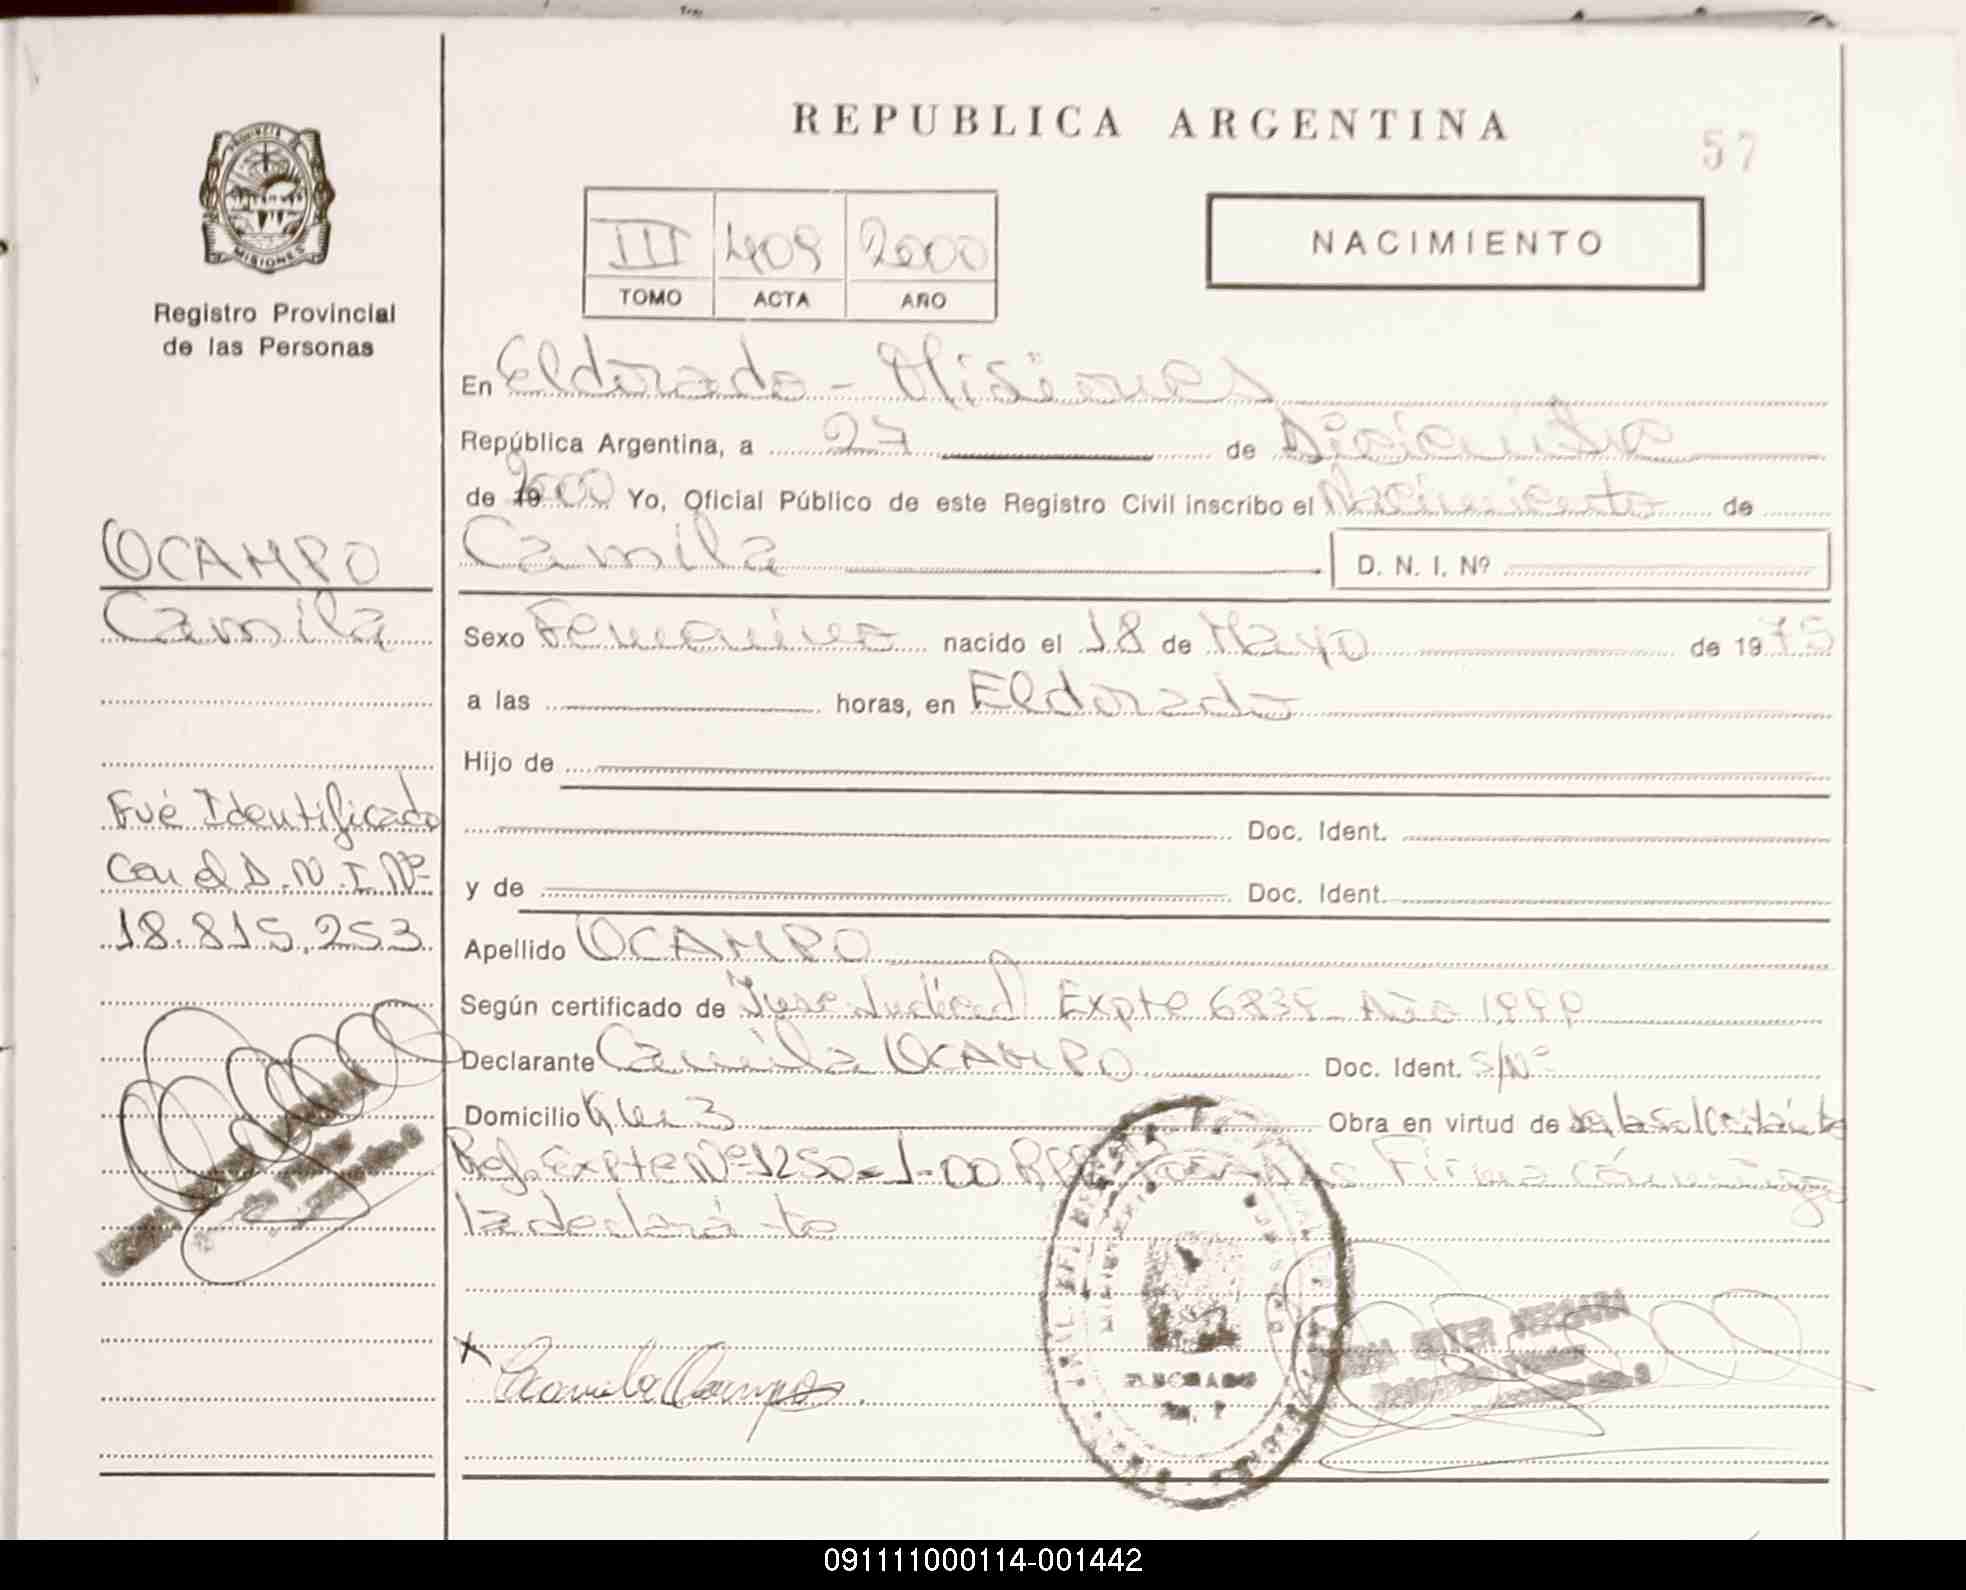 REPUBLICA ARGENTINA
57
PROVINCIA
MISIONES
Registro Provincial
de las Personas
III 409 2000
TOMO ACTA AÑO
NACIMIENTO
En Eldorado - Misiones
República Argentina, a 27 de Diciembre
de 2000 Yo, Oficial Público de este Registro Civil inscribo el Nacimiento de
Camila D. N. I. Nº
OCAMPO
Camila
Fué Identificado
Con el D.N.I. Nº
18.815.253
Sexo Femenino nacido el 18 de Mayo de 1975
a las horas, en Eldorado
Hijo de
Doc. Ident.
y de Doc. Ident.
Apellido OCAMPO
Según certificado de Inf. Judicial Expte Año 1999
Declarante Camila OCAMPO Doc. Ident. S/Nº
Domicilio Km 3 Obra en virtud de
Ref. Expte Nº 1250-1-00 Firma conmigo
la declarante
Camila Ocampo
ELDORADO
091111000114-001442